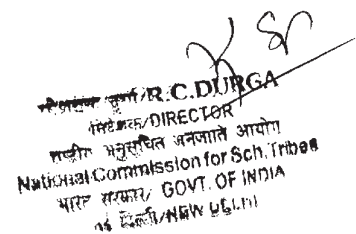 R.C.DURGA
निदेशक/DIRECTOR
राष्ट्रीय अनुसूचित जनजाति आयोग
National Commission for Sch. Tribes
भारत सरकार/ GOVT. OF INDIA
नई दिल्ली/NEW DELHI